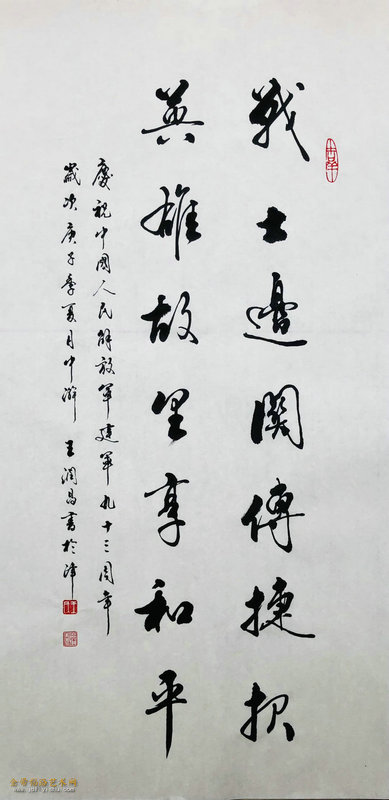 戰士邊関傳捷报
英雄故里享和平
慶祝中國人民解放軍建軍九十三周年
歲次庚子季夏月中澣 王潤昌書於津